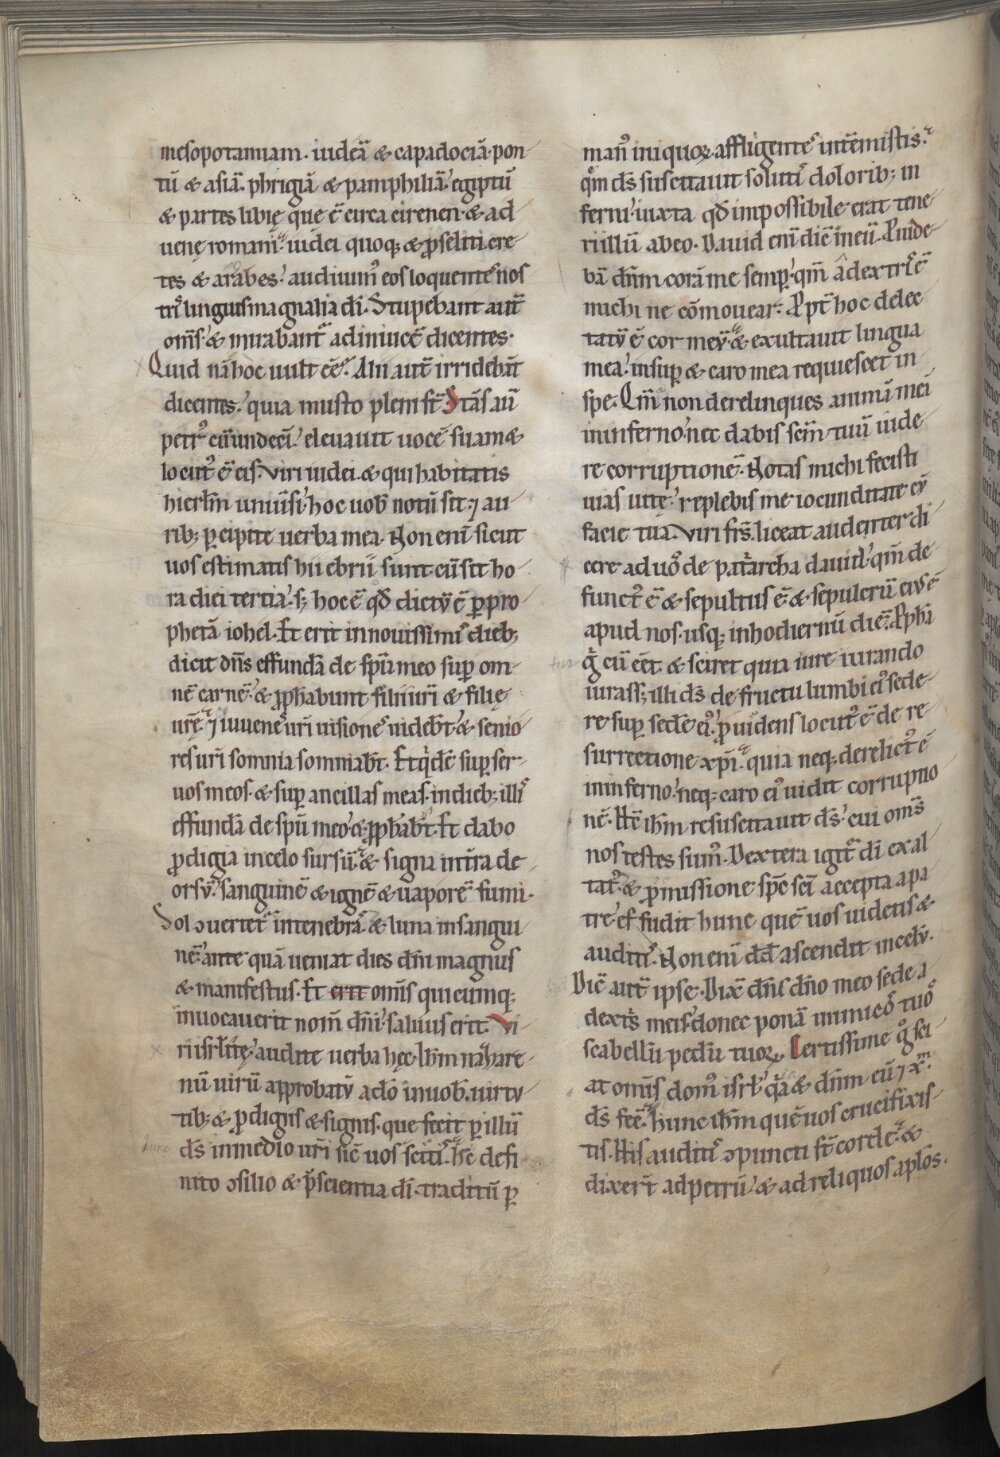 mesopotamiam. iudeā & capadociā. pon
tū & asiā. phrigiā & pamphiliā. egiptū
& partes libię que ē circa cirenen. & ad
uenę romani. iudei quoq; & ꝓseliti. cre
tes & arabes. audiuimꝰ eos loquentes nos
tris linguis magnalia di. Stupebant autē
oms. & mirabantʳ adinuicē dicentes.
Quid nā hoc uult ēē. Alii autē irridebāt
dicentes. quia musto pleni st̄. Stās aū
petrꝰ cū undecī. eleuauit uocē suam &
locutꝰ ē eis. Viri iudei. & qui habitatis
hierlm uniūsi. hoc uob notū sit. ⁊ au
rib; ꝑcipite uerba mea. Non enī sicut
uos estimatis hii ebrii sunt. cū sit ho
ra diei tertia. s; hoc ē qd dictꝰ ē ꝑ pro
phetā iohel. Et erit in nouissimis dieb;
dicit dns effundā de spū meo suꝑ om
nē carnē. & ꝓphabunt filii uri & filię
urę. ⁊ iuuenes uri uisiones uidebt. & senio
res uri somnia somniabt. Et qidē suꝑ ser
uos meos. & suꝑ ancillas meas. in dieb; illis
effundā de spū meo. & ꝓphabt. Et dabo
ꝓdigia in celo sursū. & signa in tra de
orsū. sanguinē & ignē & uaporē fumi.
Sol ɔuertet in tenebras. & luna in sangui
nē. ante quā ueniat dies dni magnus
& manifestus. Et erit omis quicumq;
inuocauerit nom dni. saluus erit. Vi
ri isrlitę. audite uerba hęc. Ihm nazare
nū uirū approbatū a do in uob. uirtu
tib; & ꝓdigiis & signis. que fecit ꝑ illū
ds in medio uri sic uos scitis. hc defi
nito ɔsilio & p̄scientia di. traditū ꝑ
manꝰ iniquoꝝ affligentes intemistis.
qm ds suscitauit solutis dolorib; in
ferni. iuxta qd impossibile erat tene
ri illū ab eo. Dauid enī dic in eū. Puide
bā dnm corā me semꝑ. qm a dextris ē
michi ne cōmouear. Ppt hoc delec
tatꝰ ē cor meū. & exultauit lingua
mea. insuꝑ & caro mea requiescet in
spe. Qm non derelinques animā meā
in inferno. nec dabis scm tuū uide
re corruptionē. Notas michi fecisti
uias uitę. replebis me iocunditate cū
facie tua. Viri frs. liceat audenter di
cere ad uos de patarcha dauid. qm de
functꝰ ē & sepultus ē. & sepulcrū eius ē
apud nos. usq; in hodiernū diē. Ppha
g cū eet & sciret quia iure iurando
iurass; illi ds de fructu lumbi eiꝰ sede
re suꝑ sedē eiꝰ. ꝓuidens locutꝰ ē de re
surrectione xpi. quia neq; derelictꝰ ē
in inferno. neq; caro eiꝰ uidit corruptio
nē. Hc ihm resuscitauit ds. cui oms
nos testes sumꝰ. Dextera igit di exal
tatꝰ. & ꝓmissione spc sci accepta a pa
tre. effudit hunc quē uos uidetis &
auditis. Non enī dd ascendit in celū.
Dic aut ipse. Dix dns dno meo sede a
dextris meis. donec ponā inimicos tuos
scabellū pedū tuoꝝ. Certissime go sci
at omis domꝰ isrl. qa & dnm eū ⁊ xm
ds fec. hunc ihm quē uos crucifixis
tis. His auditis ɔpuncti st corde. &
dixert ad petrū. & ad reliquos aplos.